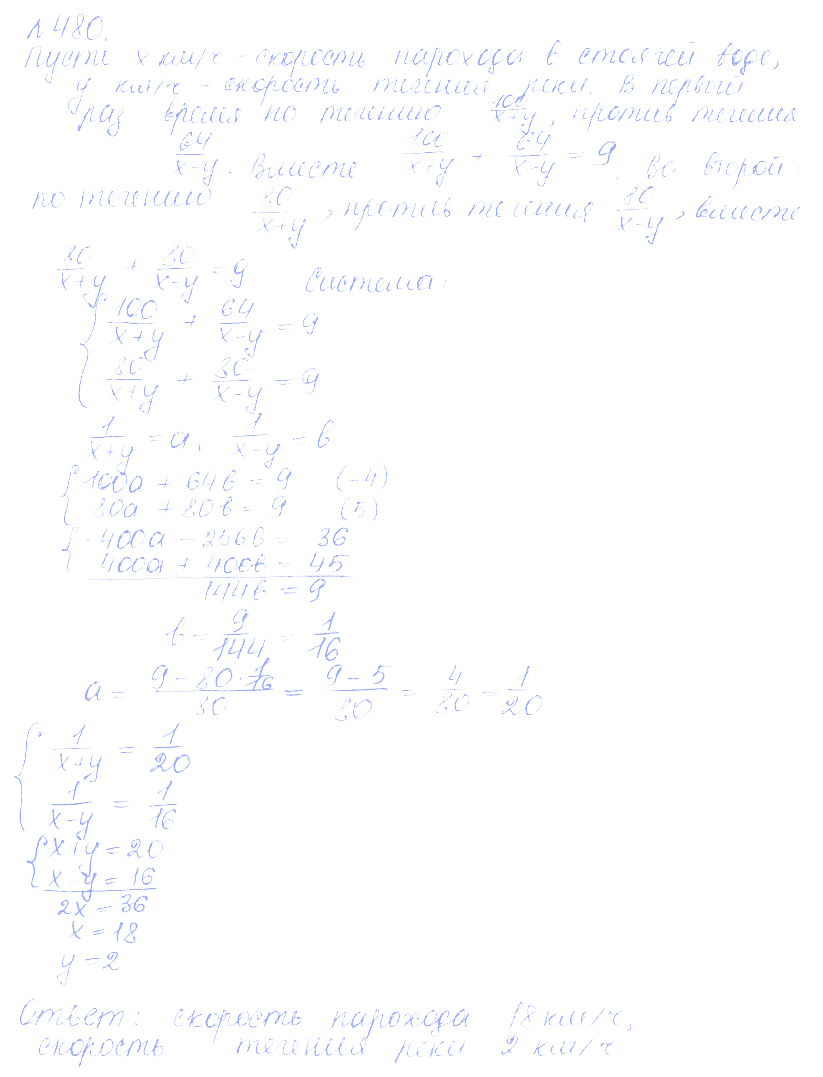 №480.
Пусть x км/ч - скорость парохода в стоячей воде,
y км/ч - скорость течения реки. В первый
раз время по течению 100/(x+y), против течения
64/(x-y). Вместе 100/(x+y) + 64/(x-y) = 9. Во второй:
по течению 80/(x+y), против течения 80/(x-y), вместе
80/(x+y) + 80/(x-y) = 9. Система:
{ 100/(x+y) + 64/(x-y) = 9
80/(x+y) + 80/(x-y) = 9
1/(x+y) = a, 1/(x-y) = b
{ 100a + 64b = 9 (-4)
80a + 80b = 9 (5)
{ -400a - 256b = 36
400a + 400b = 45
144b = 9
b = 9/144 = 1/16
a = (9 - 80·1/16)/80 = (9-5)/80 = 4/80 = 1/20
{ 1/(x+y) = 1/20
1/(x-y) = 1/16
{ x+y = 20
x-y = 16
2x = 36
x = 18
y = 2
Ответ: скорость парохода 18 км/ч,
скорость течения реки 2 км/ч